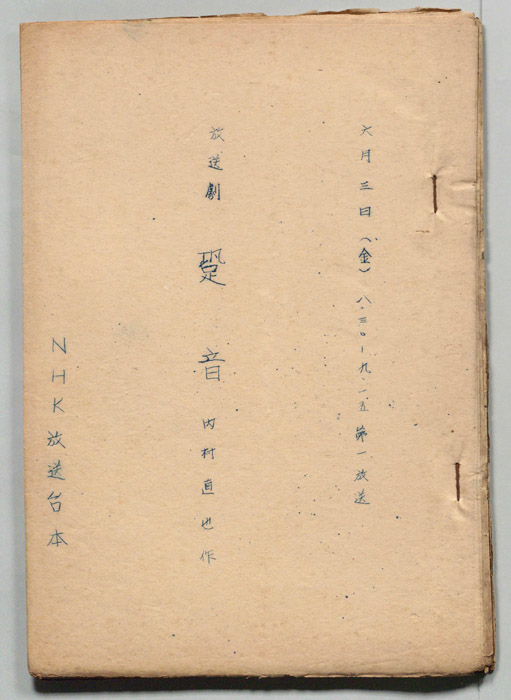 六月三日（金）八・三〇ー九・一五 第一放送
放送劇 跫音 内村直也作
NHK放送台本